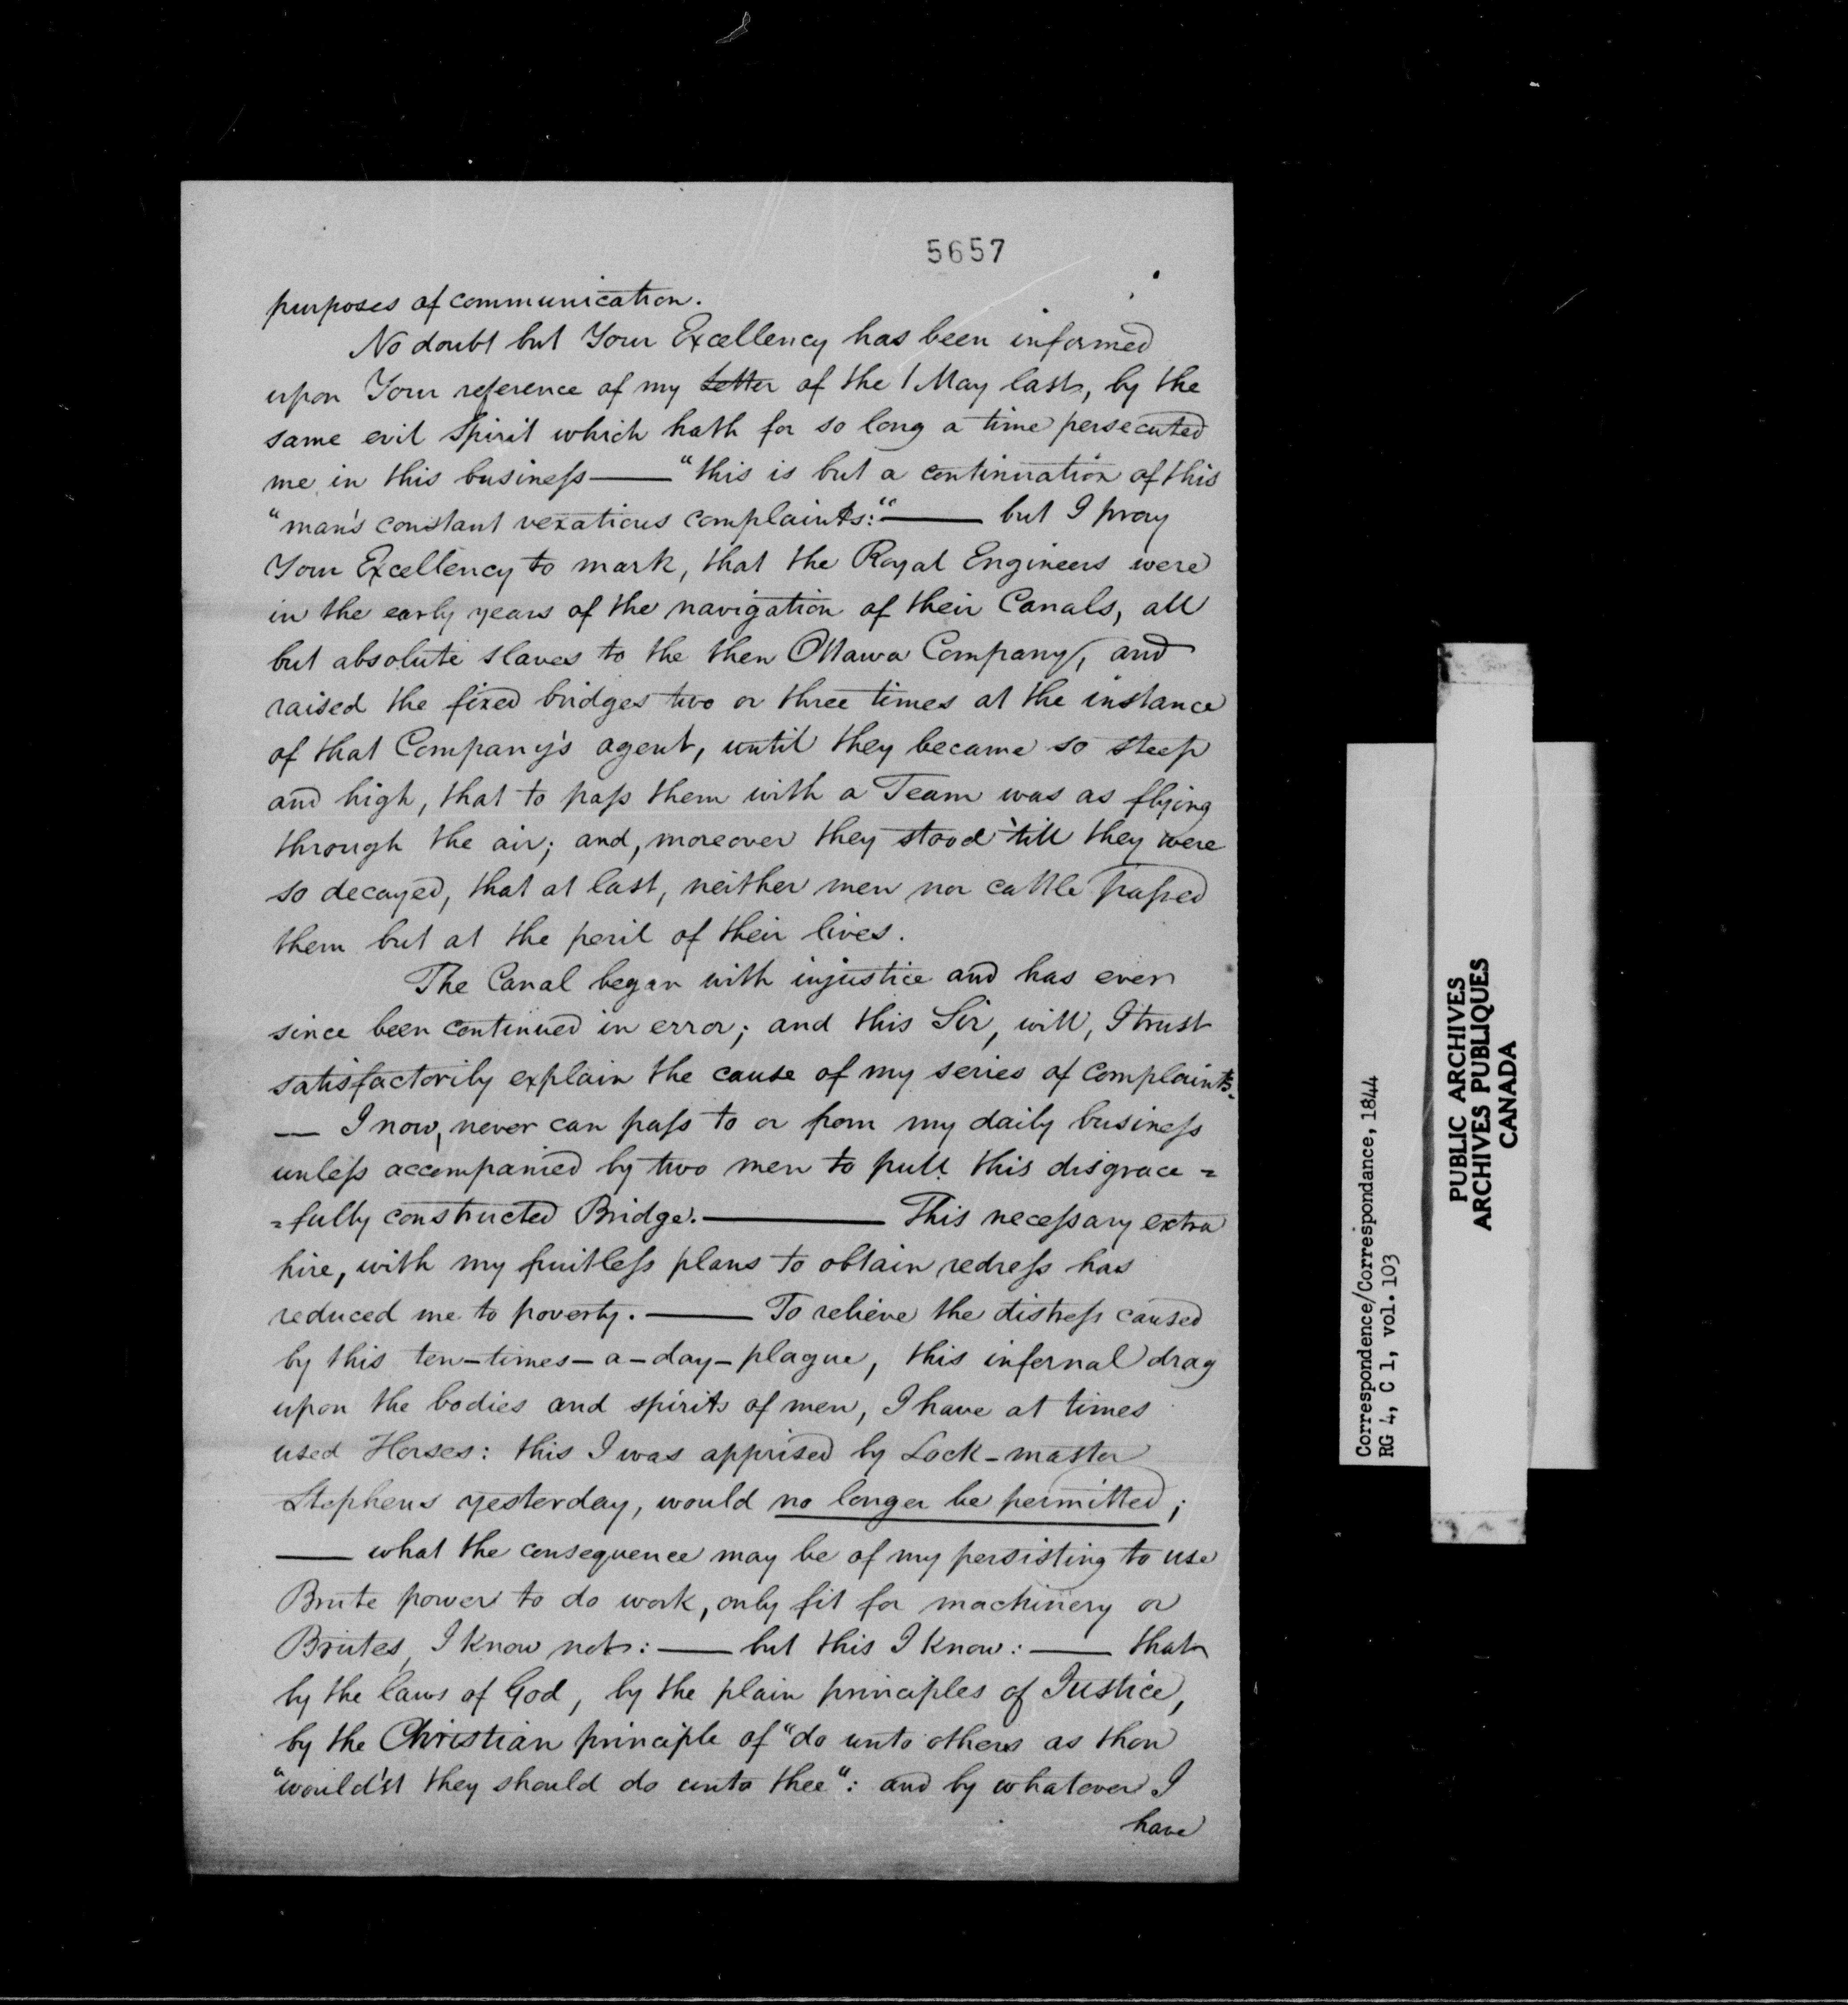 5657
purposes of communication.
No doubt but Your Excellency has been informed
upon Your reference of my Letter of the 1 May last, by the
same evil Spirit which hath for so long a time persecuted
me in this business —— "this is but a continuation of this
"man's constant vexatious complaints:" —— but I pray
Your Excellency to mark, that the Royal Engineers were
in the early years of the navigation of their Canals, all
but absolute slaves to the then Ottawa Company, and
raised the fixed bridges two or three times at the instance
of that Company's agent, until they became so steep
and high, that to pass them with a Team was as flying
through the air; and, moreover they stood 'till they were
so decayed, that at last, neither men nor cattle passed
them but at the peril of their lives.
The Canal began with injustice and has ever
since been continued in error; and this Sir, will, I trust
satisfactorily explain the cause of my series of Complaints.
— I now, never can pass to or from my daily business
unless accompanied by two men to pull this disgrace =
= fully constructed Bridge. ——— This necessary extra
hire, with my fruitless plans to obtain redress has
reduced me to poverty. —— To relieve the distress caused
by this ten-times-a-day-plague, this infernal drag
upon the bodies and spirits of men, I have at times
used Horses: this I was apprised by Lock-master
Stephens yesterday, would no longer be permitted;
—— what the consequence may be of my persisting to use
Brute power to do work, only fit for machinery or
Brutes, I know not: —— but this I know: —— that
by the laws of God, by the plain principles of Justice,
by the Christian principle of "do unto others as thou
"would'st they should do unto thee": and by whatever I
have
Correspondence/Correspondance, 1844
RG 4, C 1, vol. 103
PUBLIC ARCHIVES
ARCHIVES PUBLIQUES
CANADA